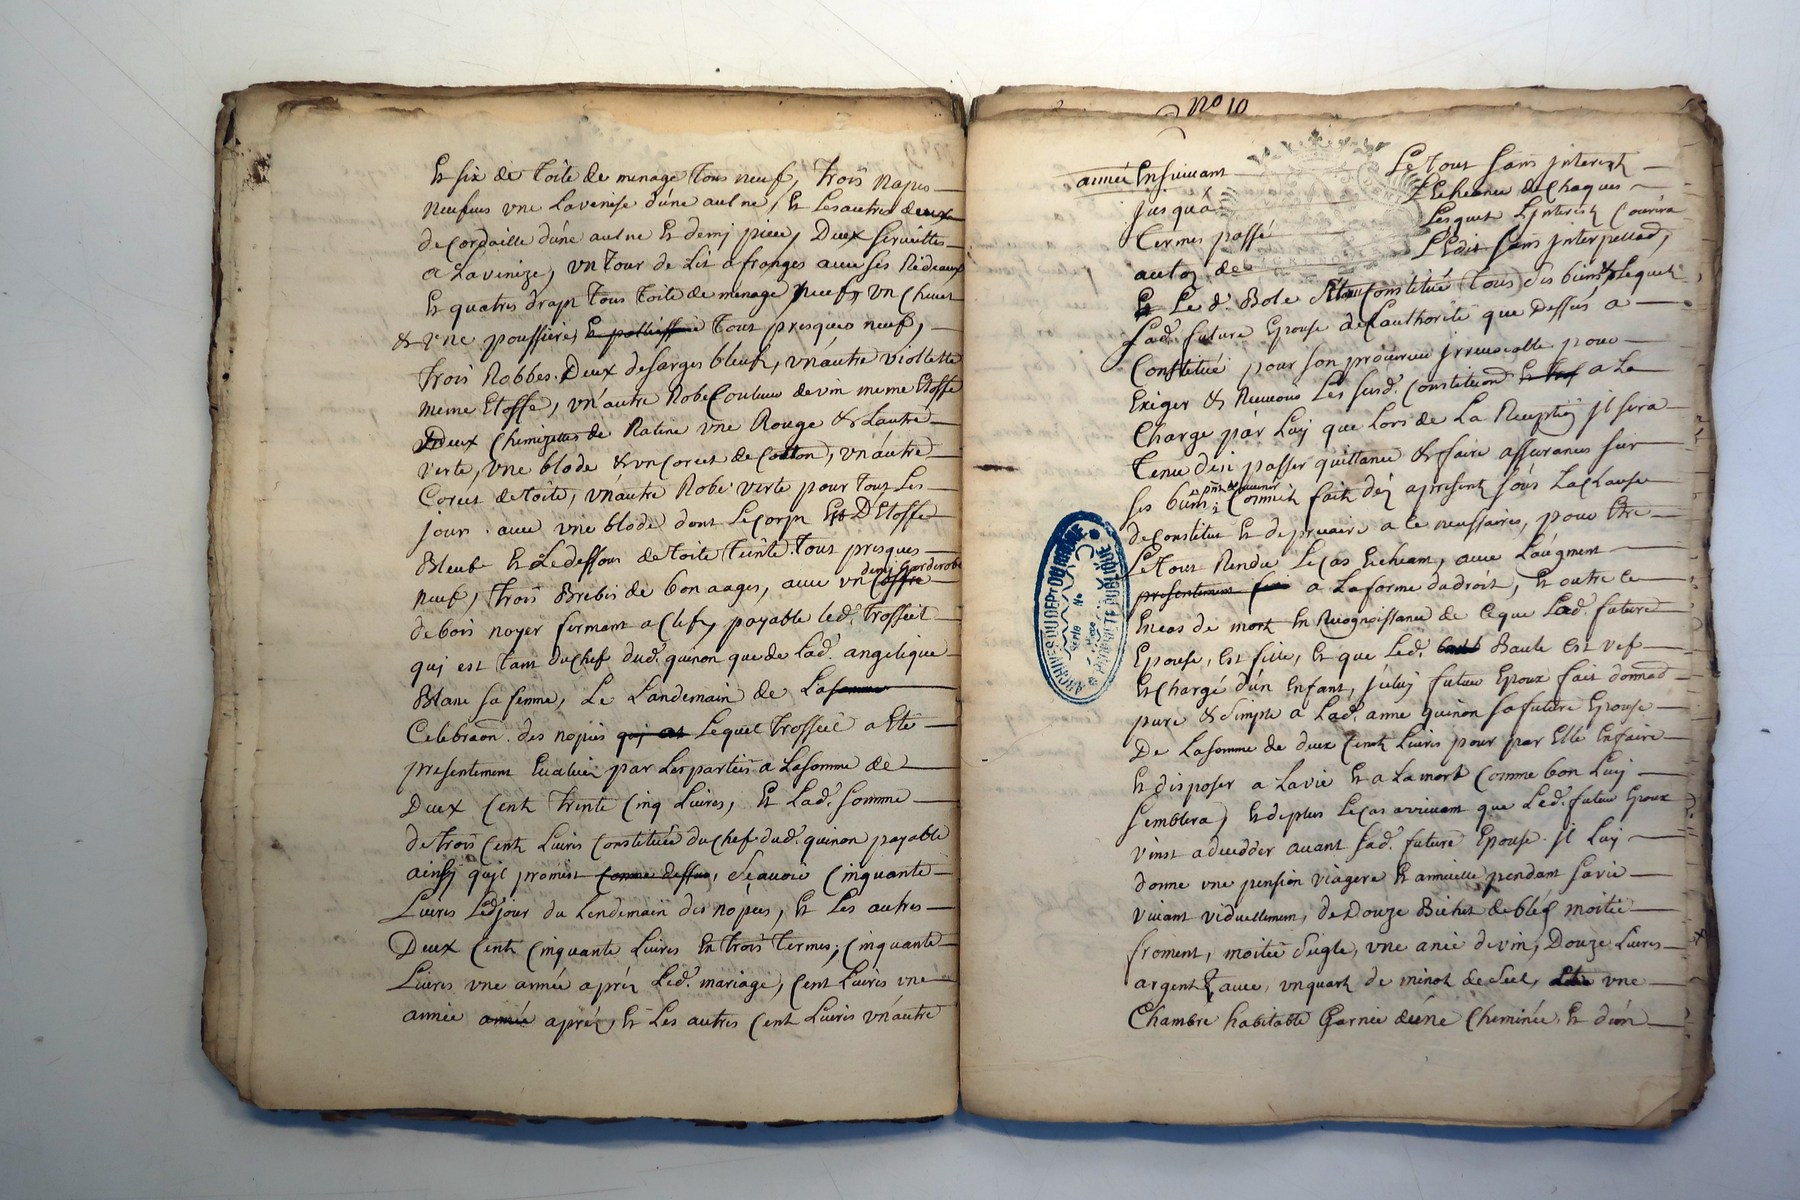 Et six de toile de menage tous neuf, trois napes
neufves vne La venise d'une aulne, Et les autres deux
de Cordaille d'une aulne Et demj piece, Deux serviettes
a La venize, vn Tour de Lit a franges avec ses Rideaux
Et quatres drapt Tous toile de menage neufs, vn Chevet
& vne poussiere, Et tout presques neuf,
trois Robbes. Deux de sarges bleuf, vn autre viollette
meme Etoffe, vn autre Robe Couleur de vin meme Etoffe
Deux Chemizettes de Ratine vne Rouge & L'autre
verte, vne blode & vn Corcet de Cotton, vn autre
Corcet de toile, vn autre Robe verte pour tout Les
jours. avec vne blode dont Le Corpt Est D'Etoffe
Bleuf Et Le dessous de toile teinte. tout presques
demj garderobe
neuf, trois Brebis de bon aages, avec vn Coffre
de bois noyer fermant a Clefs, payable led. trosseil
quj est tant du Chef dud. quinon que de Lad. angelique
Blanc sa femme, Le Landemain de La
Celebraon. des nopces quj est Lequel trosseil a Eté
presentement Evalué par Les parties a La somme de
Deux Cent trente Cinq Livres, Et Lad. somme
de trois Cent Livres Constituée du Chef dud. quinon payable
ainsj qu'jl promest Comme dessus, sçavoir Cinquante
Livres Led. jour du Lendemain des nopces, Et Les autres
Deux Cent Cinquante Livres En trois termes; Cinquante
Livres vne année aprés Led. mariage, Cent Livres vne
année année aprés, Et Les autres Cent Livres vn autre
No 10
année Ensuivant Le tout sans jnterest
jusqu'a L'Echeance de Chaques
termes passé Lesquel L'jnterest Courira
auton de L'Edit sans jnterpellaõ,
Et Led. Bole Constitué tous ses biens Lequel
Lad. future Epouse de L'authorité que Dessus a
Constitué pour son procureur jrrevocable pour
Exiger & Recevoir Les susd. Constitutions Et a La
Charge par Luj que Lors de La Reception jl sera
tenu d'en passer quittance & faire assurances sur
prnt & avenir
ses biens; Comme jl fait déz apresent sous La Clause
de Constitut Et de precaire a ce necessaires, pour Etre
Le tout Rendu Le Cas Echeant, avec L'augment
presentement a La forme du droit, Et outre ce
En cas de mort En Recognoissance de ce que Lad. future
Epouse, Est fille, Et que Led. Baule Est vef
Et Chargé d'un Enfant, jcelui futur Epoux fait donnaõ
pure & simple a Lad. anne quinon sa future Epouse
De La somme de deux Cent Livres pour par Elle En faire
Et disposer a La vie Et a La mort Comme bon Luj
semblera, Et de plus Le Cas arrivant que Led. futur Epoux
vinst a deceder avant Lad. future Epouse. jl Luj
donne vne pension viagere Et annuelle pendant sa vie
vivant viduellement, de Douze Bichet de bled moitié
froment, moitié seigle, vne anée de vin, Douze Livres
argent, avec, vn quart de minot de sel, vne
Chambre habitable Garnie d'une Cheminée, Et d'un
ARCHIVES DU DEPT DU RHÔNE
PROPRIETE PUBLIQUE
Série No